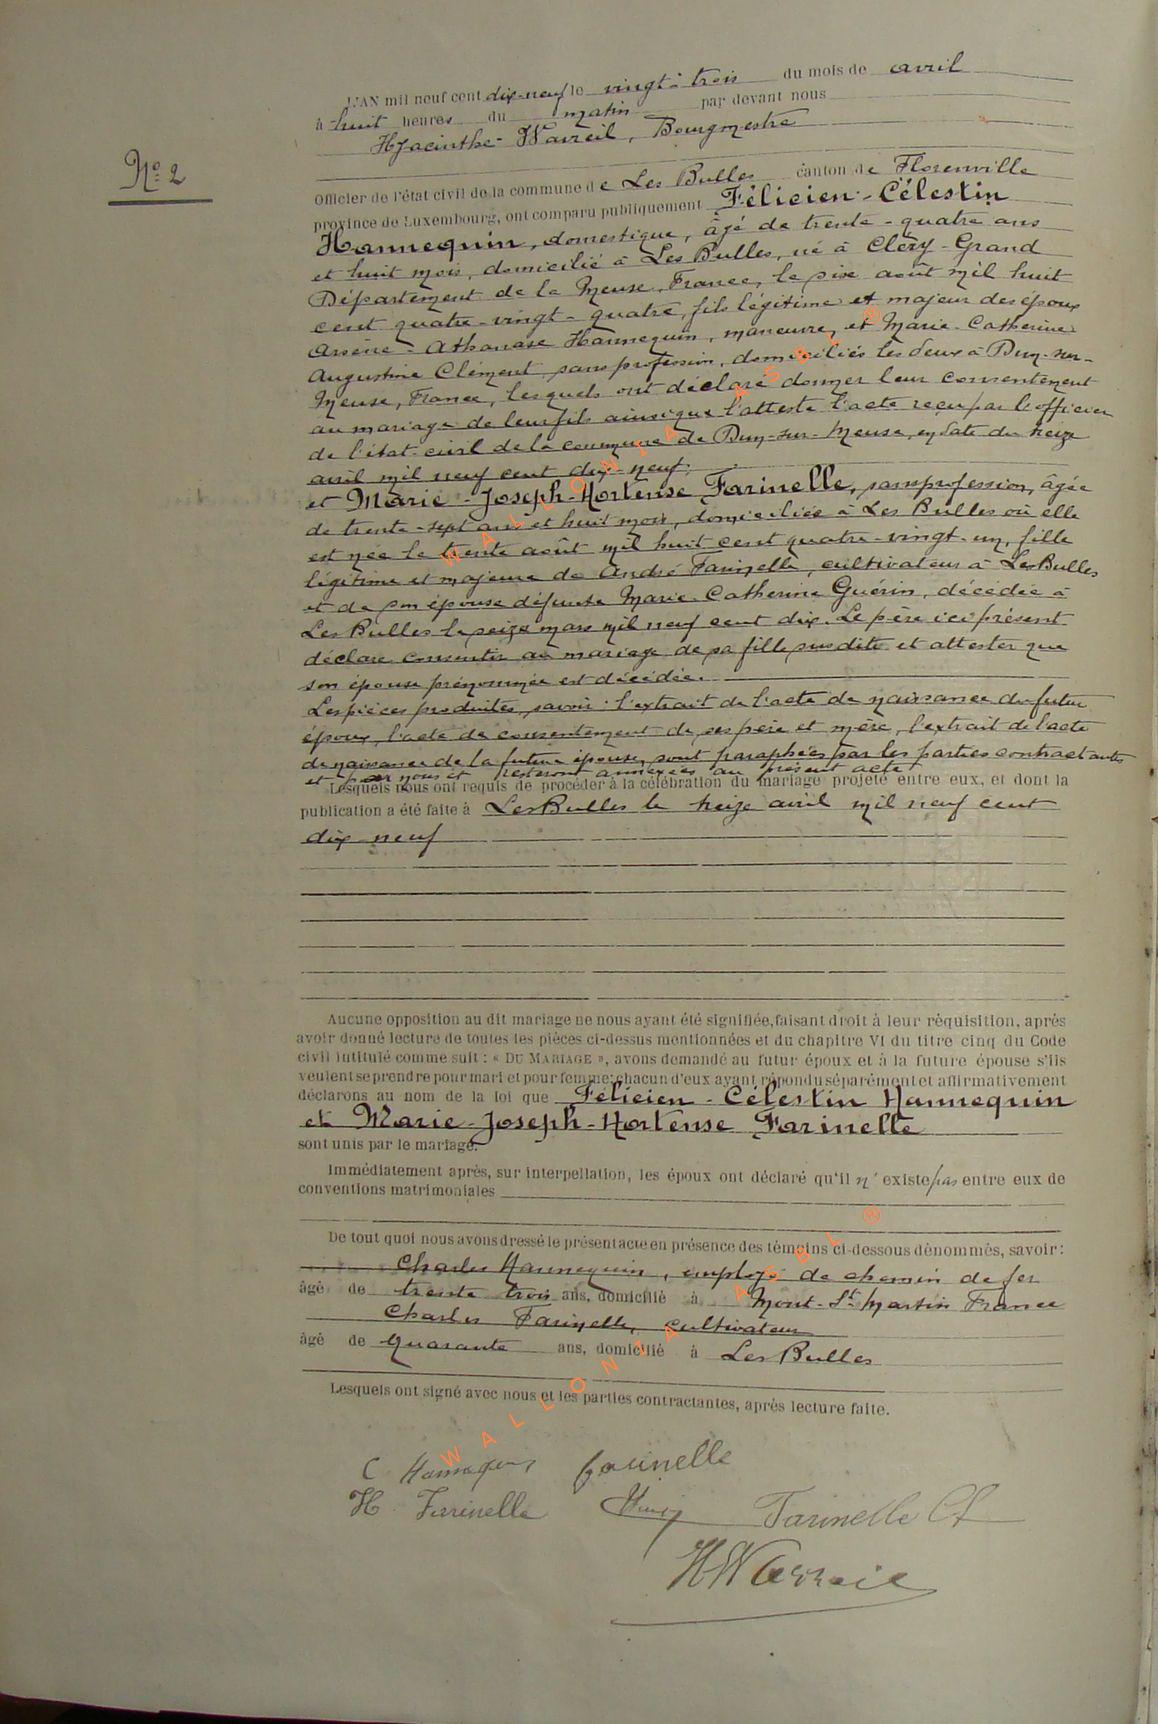 L'AN mil neuf cent dix-neuf le vingt-trois du mois de avril
à huit heures du matin par devant nous
Hyacinthe Warzeil, Bourgmestre
Nº 2
Officier de l'état civil de la commune de Les Bulles canton de Florenville
province de Luxembourg, ont comparu publiquement Félicien-Célestin
Hannequin, domestique, âgé de trente-quatre ans
et huit mois, domicilié à Les Bulles, né à Cléry-Grand
Département de la Meuse, France, le six août mil huit
cent quatre-vingt-quatre, fils légitime et majeur des époux
Arsène-Athanase Hannequin, manœuvre, et Marie-Catherine
Augustine Clément, sans profession, domiciliés les deux à Dun-sur-
Meuse, France, lesquels ont déclaré donner leur consentement
au mariage de leur fils ainsi que l'atteste l'acte reçu par l'officier
de l'état-civil de la commune de Dun-sur-Meuse, en date du treize
avril mil neuf cent dix-neuf;
et Marie-Joseph-Hortense Farinelle, sans profession, âgée
de trente-sept ans et huit mois, domiciliée à Les Bulles où elle
est née le trente août mil huit cent quatre-vingt-un, fille
légitime et majeure de André Farinelle, cultivateur à Les Bulles
et de son épouse défunte Marie-Catherine Guérin, décédée à
Les Bulles le seize mars mil neuf cent dix. Le père ici présent
déclare consentir au mariage de sa fille susdite et attester que
son épouse prénommée est décédée.
Les pièces produites, savoir: l'extrait de l'acte de naissance du futur
époux, l'acte de consentement de ses père et mère, l'extrait de l'acte
de naissance de la future épouse, sont paraphées par les parties contractantes
et par nous et resteront annexées au présent acte
Lesquels nous ont requis de procéder à la célébration du mariage projeté entre eux, et dont la
publication a été faite à Les Bulles le treize avril mil neuf cent
dix neuf
Aucune opposition au dit mariage ne nous ayant été signifiée, faisant droit à leur réquisition, après
avoir donné lecture de toutes les pièces ci-dessus mentionnées et du chapitre VI du titre cinq du Code
civil intitulé comme suit : « DU MARIAGE », avons demandé au futur époux et à la future épouse s'ils
veulent se prendre pour mari et pour femme; chacun d'eux ayant répondu séparément et affirmativement
déclarons au nom de la loi que Félicien-Célestin Hannequin
et Marie-Joseph-Hortense Farinelle
sont unis par le mariage.
Immédiatement après, sur interpellation, les époux ont déclaré qu'il n'existe pas entre eux de
conventions matrimoniales
De tout quoi nous avons dressé le présent acte en présence des témoins ci-dessous dénommés, savoir :
Charles Hannequin, employé de chemin de fer
âgé de trente trois ans, domicilié à Mont-St Martin France
Charles Farinelle, cultivateur
âgé de quarante ans, domicilié à Les Bulles
Lesquels ont signé avec nous et les parties contractantes, après lecture faite.
C Hannequin farinelle
H Farinelle Farinelle Ch
H Warzeil
WALLONIA ASBL ®
WALLONIA ASBL ®